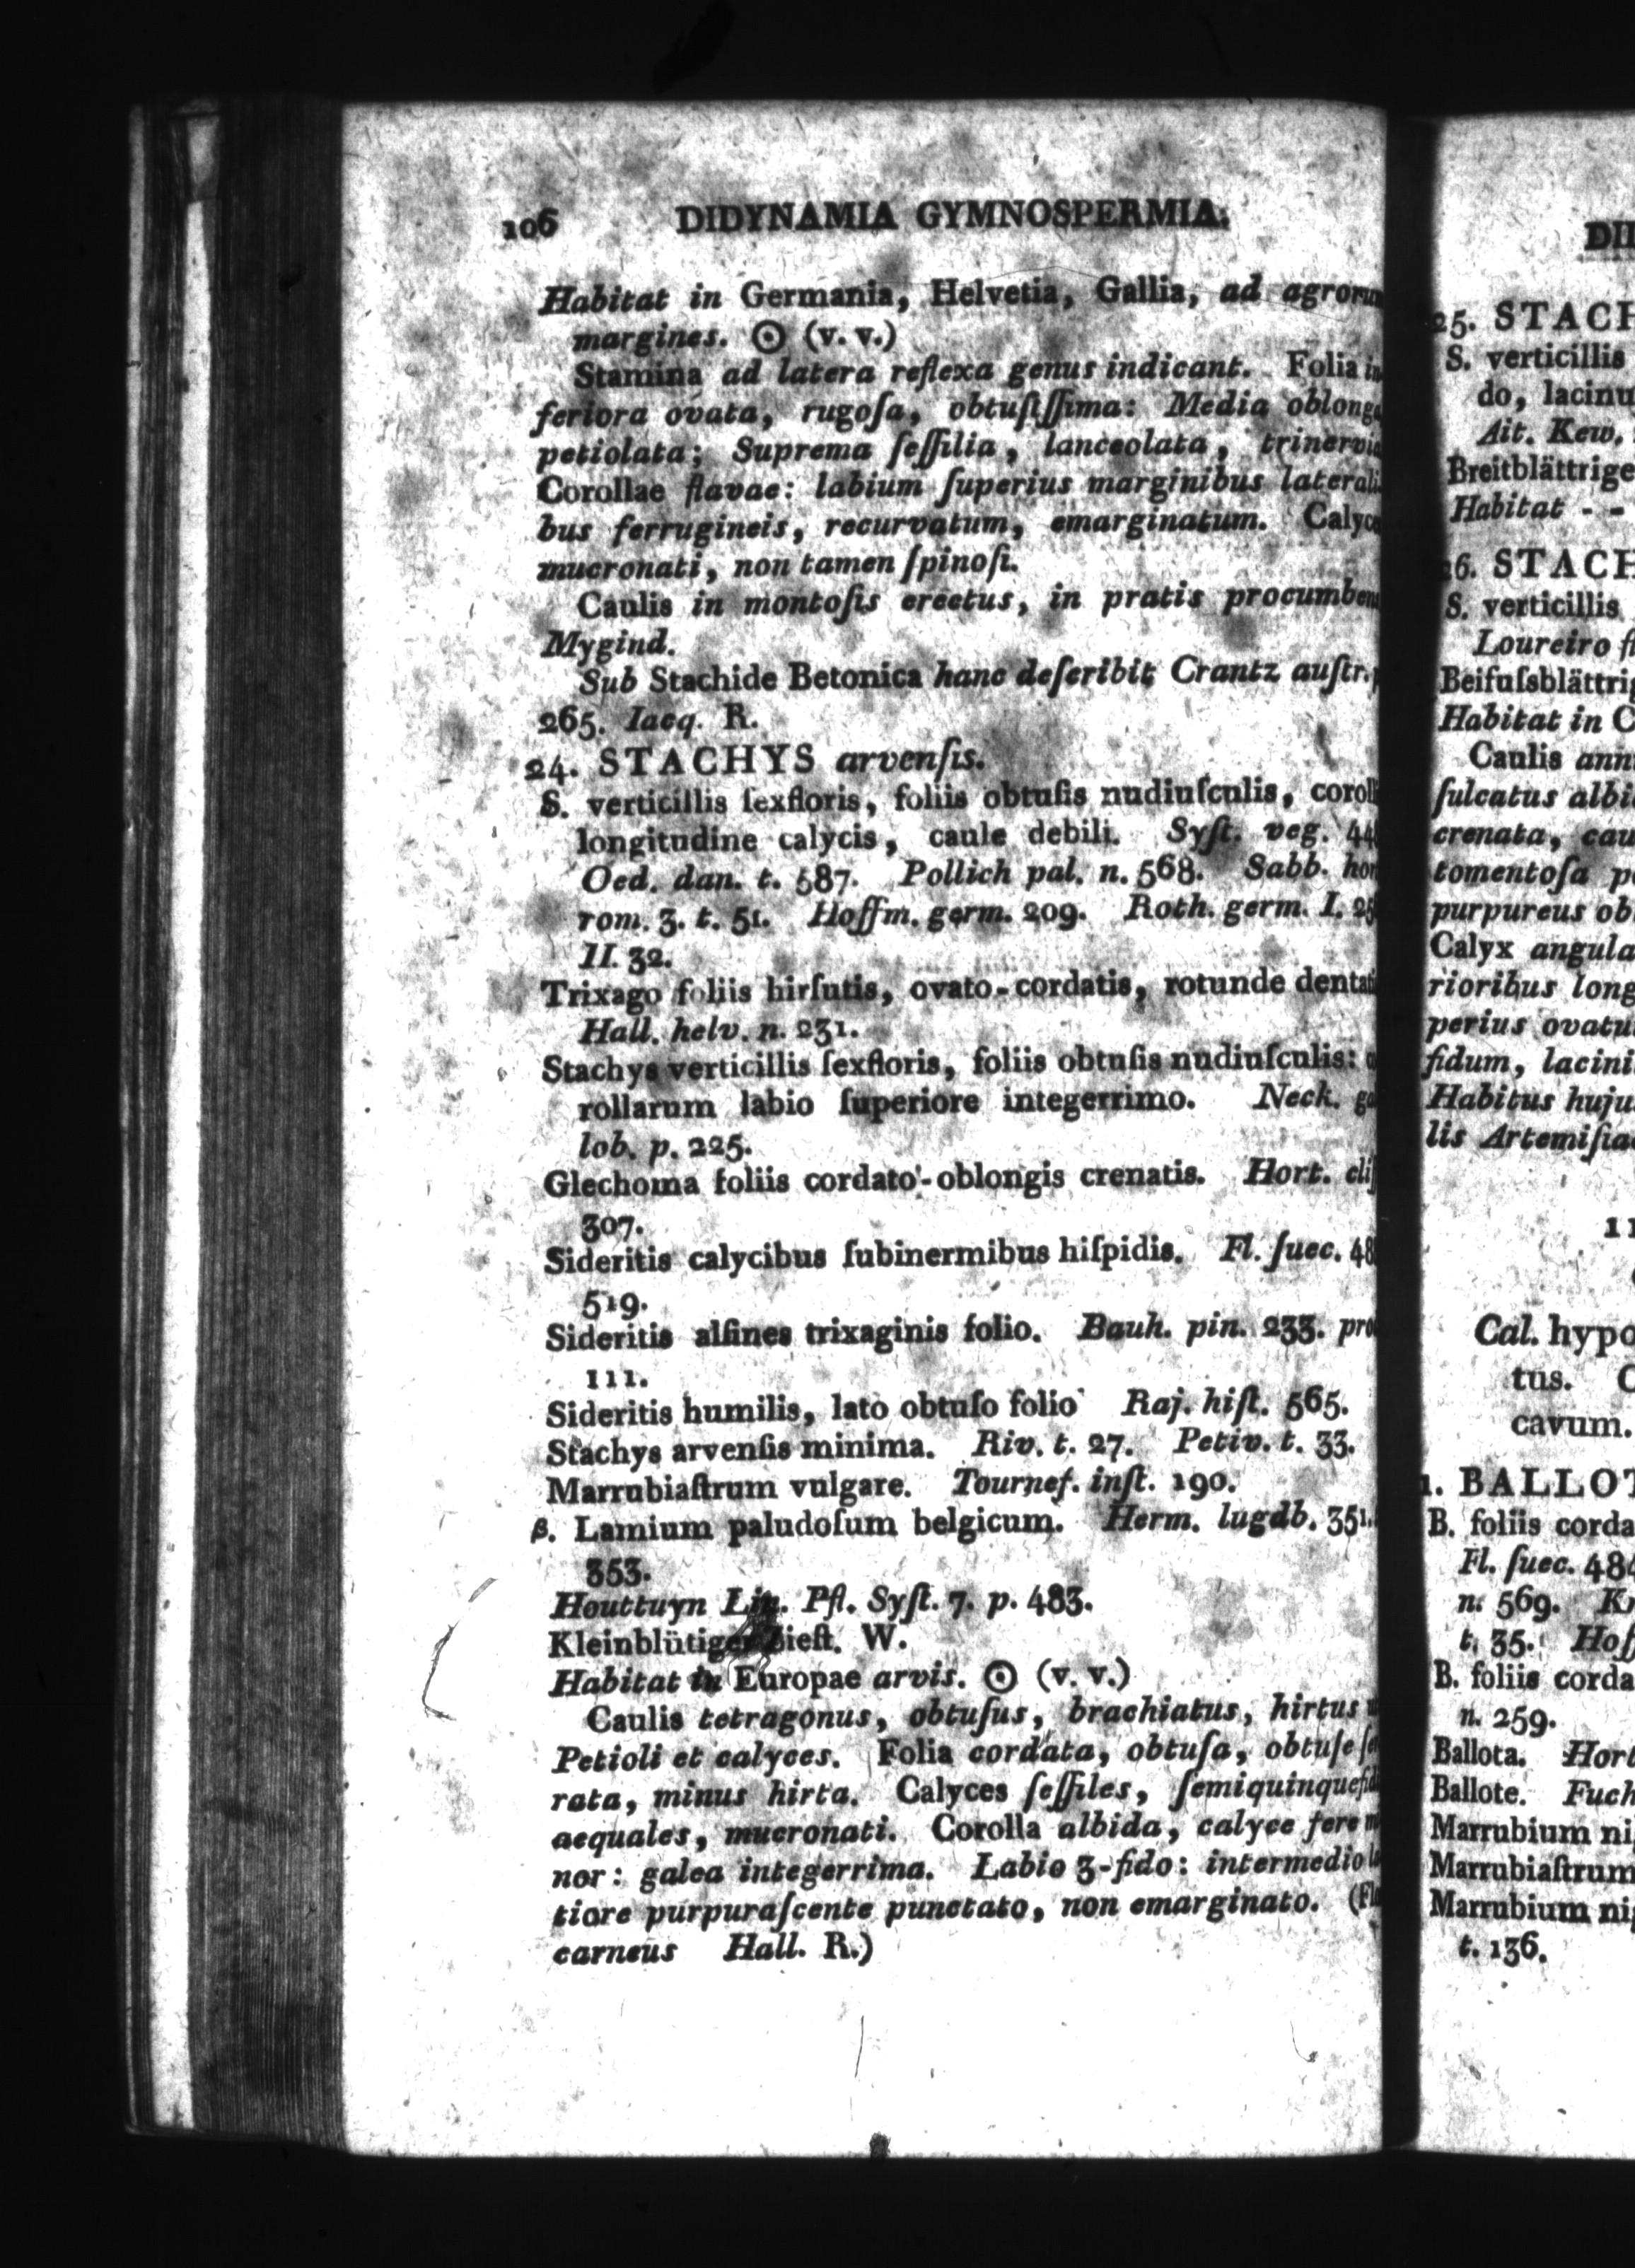 106 DIDYNAMIA GYMNOSPERMIA.
Habitat in Germania, Helvetia, Gallia, ad agrorum
margines. ☉ (v. v.)
Stamina ad latera reflexa genus indicant. Folia in
feriora ovata, rugoſa, obtuſiſſima: Media oblonga
petiolata; Suprema ſeſſilia, lanceolata, trinervia
Corollae flavae: labium ſuperius marginibus laterali
bus ferrugineis, recurvatum, emarginatum. Calyce
mucronati, non tamen ſpinoſi.
Caulis in montoſis erectus, in pratis procumbens
Mygind.
Sub Stachide Betonica hanc deſcribit Crantz auſtr.
265. Iacq. R.
24. STACHYS arvenſis.
S. verticillis ſexfloris, foliis obtuſis nudiuſculis, coroll
longitudine calycis, caule debili. Syſt. veg. 44
Oed. dan. t. 587. Pollich pal. n. 568. Sabb. hor
rom. 3. t. 51. Hoffm. germ. 209. Roth. germ. I. 25
II. 32.
Trixago foliis hirſutis, ovato-cordatis, rotunde dentat
Hall. helv. n. 231.
Stachys verticillis ſexfloris, foliis obtuſis nudiuſculis:
rollarum labio ſuperiore integerrimo. Neck. gal
lob. p. 225.
Glechoma foliis cordato-oblongis crenatis. Hort. cliſ
307.
Sideritis calycibus ſubinermibus hiſpidis. Fl. ſuec. 48
519.
Sideritis alſines trixaginis folio. Bauh. pin. 233. pro
111.
Sideritis humilis, lato obtuſo folio Raj. hiſt. 565.
Stachys arvenſis minima. Riv. t. 27. Petiv. t. 33.
Marrubiaſtrum vulgare. Tournef. inſt. 190.
β. Lamium paludoſum belgicum. Herm. lugdb. 351.
353.
Houttuyn Lin. Pfl. Syſt. 7. p. 483.
Kleinblütiger Zieſt. W.
Habitat in Europae arvis. ☉ (v. v.)
Caulis tetragonus, obtuſus, brachiatus, hirtus
Petioli et calyces. Folia cordata, obtuſa, obtuſe ſer
rata, minus hirta. Calyces ſeſſiles, ſemiquinquefidi
aequales, mucronati. Corolla albida, calyce fere mi
nor: galea integerrima. Labio 3-fido: intermedio la
tiore purpuraſcente punctato, non emarginato. (Flo
carneus Hall. R.)
DII
25. STACH
S. verticillis
do, lacinu
Ait. Kew.
Breitblättrige
Habitat - -
26. STACH
S. verticillis
Loureiro fl
Beifuſsblättrig
Habitat in C
Caulis ann
ſulcatus albi
crenata, cau
tomentoſa p
purpureus ob
Calyx angula
rioribus long
perius ovatu
fidum, lacini
Habitus huju
lis Artemiſiae
11
Cal. hypo
tus. C
cavum.
1. BALLOT
B. foliis corda
Fl. ſuec. 484
n. 569. Kn
t. 35. Hoff
B. foliis corda
n. 259.
Ballota. Hort
Ballote. Fuch
Marrubium nig
Marrubiaſtrum
Marrubium nig
t. 136.